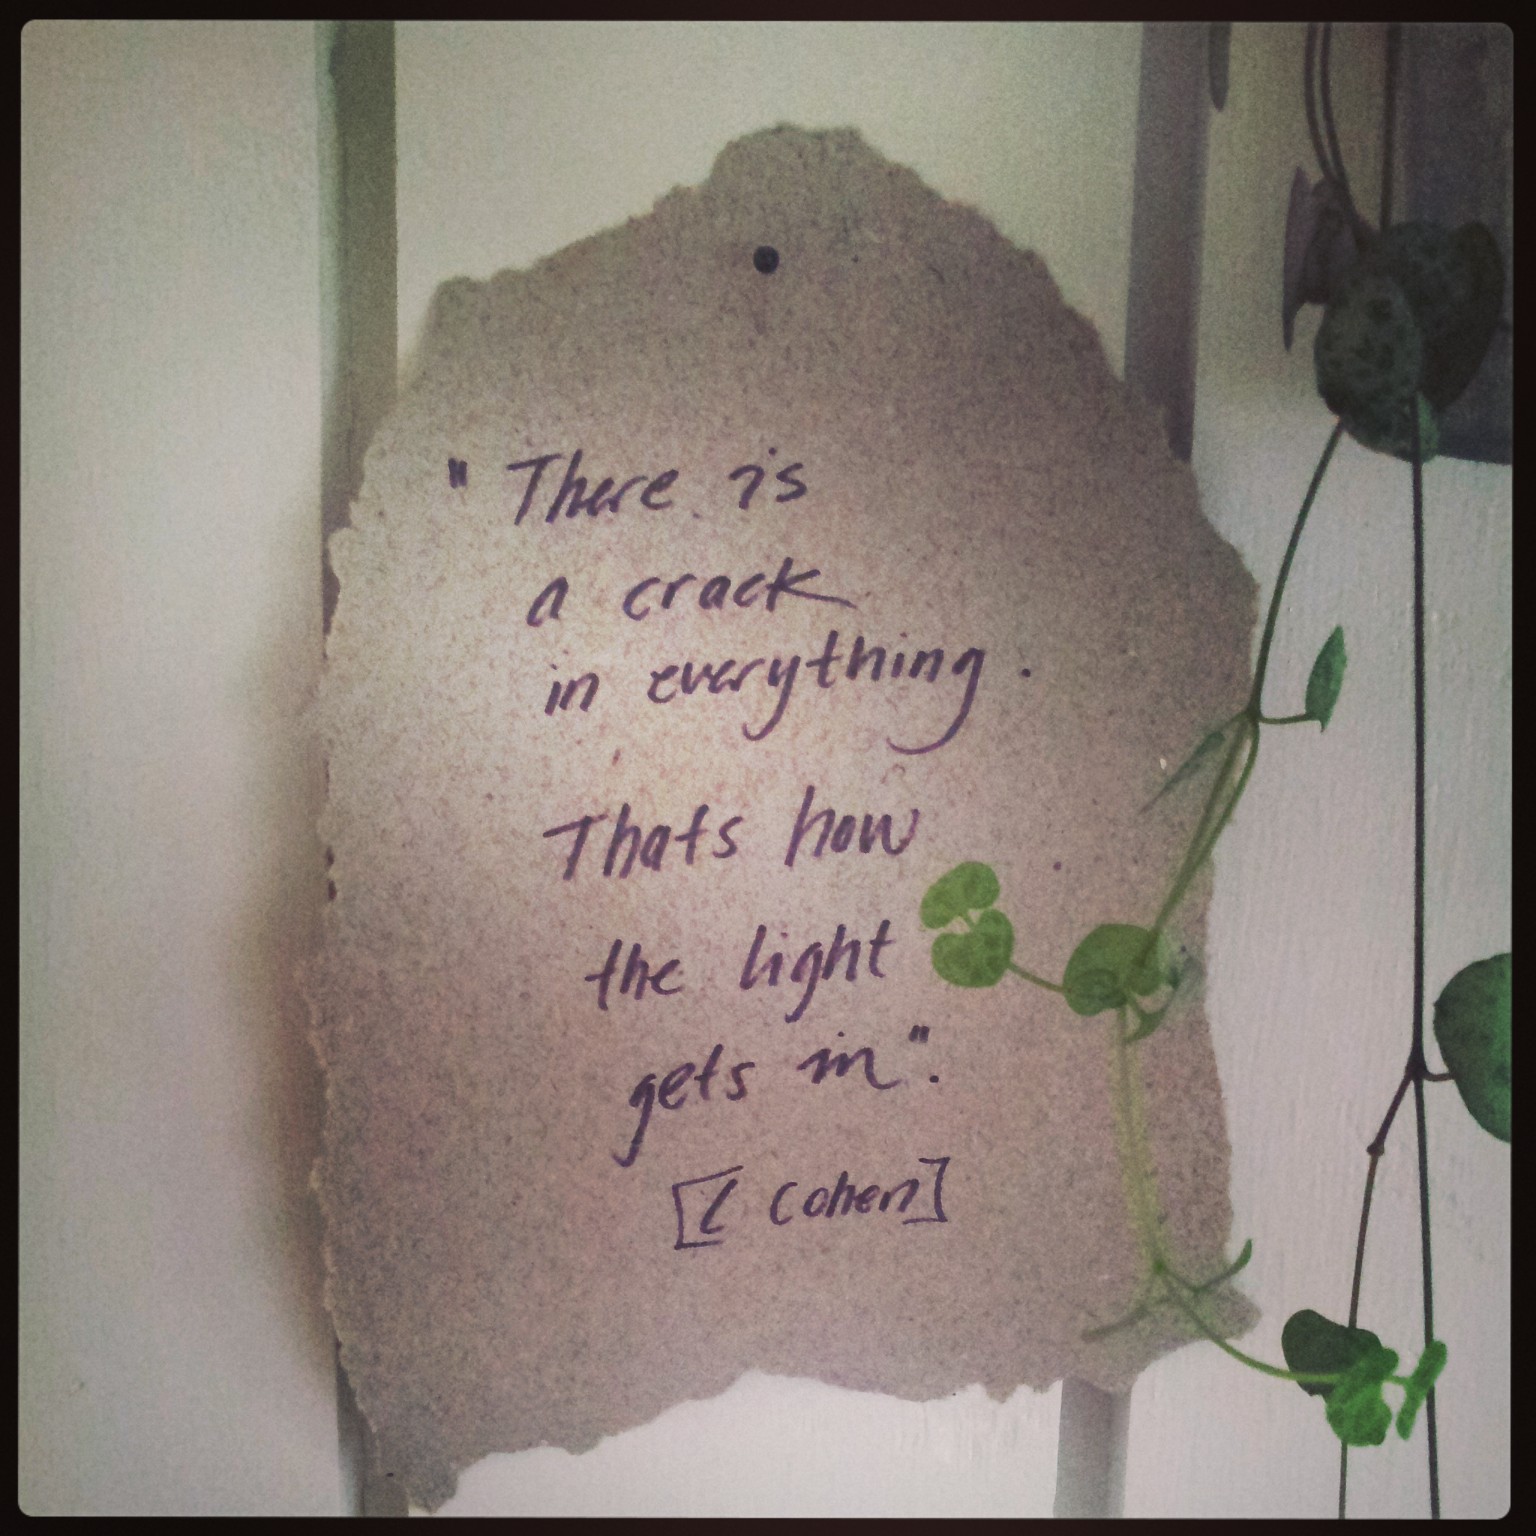 " There is
a crack
in everything.
Thats how
the light
gets in".
[L Cohen]